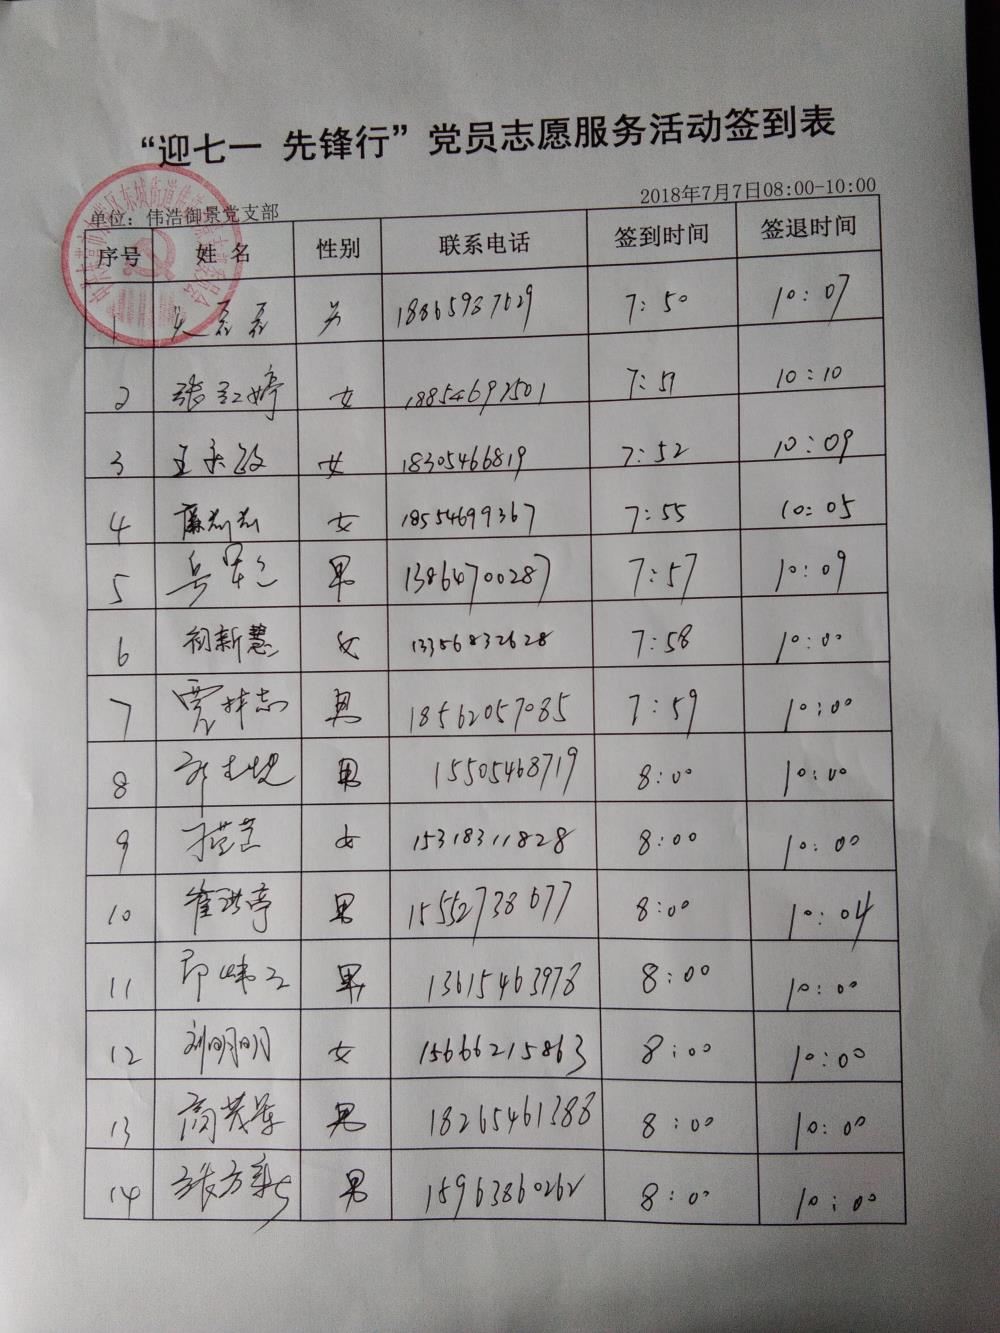 “迎七一 先锋行”党员志愿服务活动签到表
单位：伟浩御景党支部 2018年7月7日08:00-10:00
序号 姓名 性别 联系电话 签到时间 签退时间
1 磊磊 男 18865937629 7:50 10:07
2 张红婷 女 18854692501 7:51 10:10
3 王秉政 女 18305466819 7:52 10:09
4 女 18554699367 7:55 10:05
5 男 13864700287 7:57 10:09
6 初新慧 女 13356832628 7:58 10:00
7 贾梓志 男 18562057085 7:59 10:00
8 男 15505468719 8:00 10:00
9 女 15318311828 8:00 10:00
10 崔洪亭 男 15552738677 8:00 10:04
11 男 13615463978 8:00 10:00
12 刘明明 女 15666215863 8:00 10:00
13 高茂军 男 18265461388 8:00 10:00
14 张方新 男 15963860262 8:00 10:00